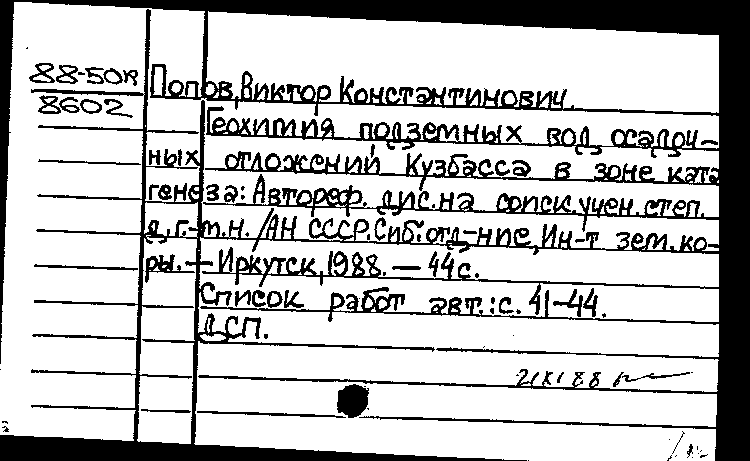 88-50к
8602
Попов, Виктор Константинович.
Геохимия подземных вод осадоч-
ных отложений Кузбасса в зоне ката
генеза: Автореф. дис. на соиск. учен. степ.
д. г.-м.н. /АН СССР. Сиб. отд-ние, Ин-т зем. ко-
ры. — Иркутск, 1988. — 44 с.
Список работ авт.: с. 41-44.
ДСП.